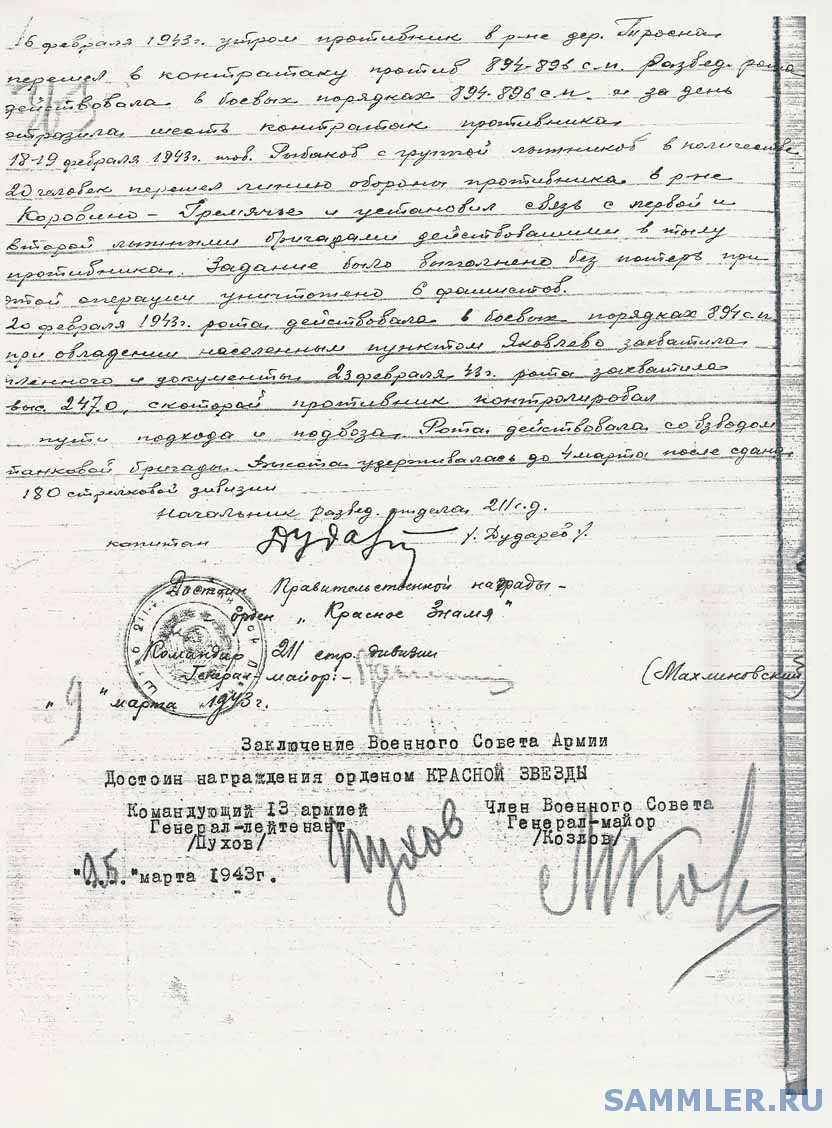 16 февраля 1943г. утром противник в р-не дер. Тросна
перешел в контратаку против 894-896 с.п. Развед. рота
действовала в боевых порядках 894-896 с.п. и за день
отразила шесть контратак противника.
18-19 февраля 1943г. тов. Рыбаков с группой лыжников в количестве
20 человек перешел линию обороны противника в р-не
Коровино – Гремячье и установил связь с первой и
второй лыжными бригадами действовавшими в тылу
противника. Задание было выполнено без потерь при
этой операции уничтожено 6 фашистов.
20 февраля 1943г. рота действовала в боевых порядках 894 с.п.
при овладении населенным пунктом Яковлево захватила
пленного и документы 23 февраля 43г. рота захватила
выс. 247.0, с которой противник контролировал
пути подхода и подвоза. Рота действовала со взводом
танковой бригады. Высота удерживалась до 4 марта после сдана
180 стрелковой дивизии
Начальник развед. отдела 211 с.д.
капитан Дударев /. Дударев /.
Достоин Правительственной награды –
орден „Красное Знамя"
Командир 211 стр. дивизии
Генерал-майор:- (Махлиновский)
„9" марта 1943г.
Заключение Военного Совета Армии
Достоин награждения орденом КРАСНОЙ ЗВЕЗДЫ
Командующий 13 армией Член Военного Совета
Генерал-лейтенант Генерал-майор
/Пухов/ Пухов /Козлов/
"25."марта 1943г.
SAMMLER.RU